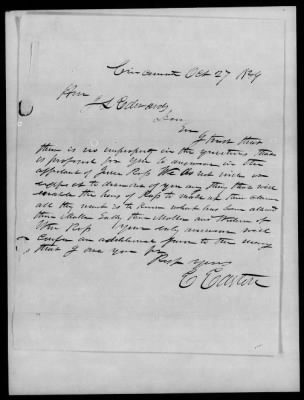 Cincinnati Oct 27 1849
Hon J L Edwards
Sir
I trust that
there is no impropriety in the questions that
is proposed for you to answer in the
affidavit of Jesse Ross We do not wish or
expect to demand of you any thing that will
enable the heirs of Ross to make up their claim
all they want is to know what has been allowed
their Mother Sally their Mother and Widow of
Wm Ross your early answer will
confer an additional favor to the many
that I owe you
Resp yours
E Easton